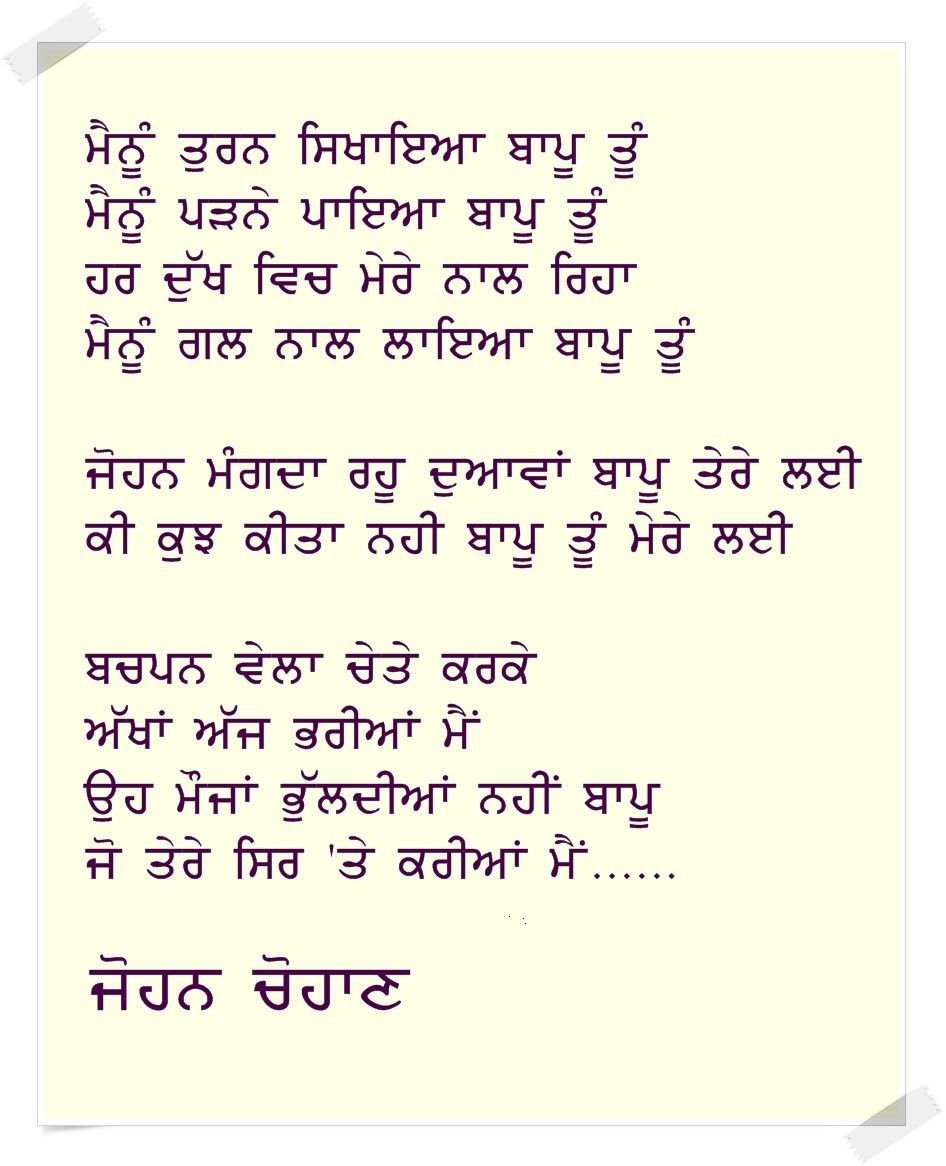 ਮੈਨੂੰ ਤੁਰਨ ਸਿਖਾਇਆ ਬਾਪੂ ਤੂੰ
ਮੈਨੂੰ ਪੜਨੇ ਪਾਇਆ ਬਾਪੂ ਤੂੰ
ਹਰ ਦੁੱਖ ਵਿਚ ਮੇਰੇ ਨਾਲ ਰਿਹਾ
ਮੈਨੂੰ ਗਲ ਨਾਲ ਲਾਇਆ ਬਾਪੂ ਤੂੰ
ਜੋਹਨ ਮੰਗਦਾ ਰਹੂ ਦੁਆਵਾਂ ਬਾਪੂ ਤੇਰੇ ਲਈ
ਕੀ ਕੁਝ ਕੀਤਾ ਨਹੀ ਬਾਪੂ ਤੂੰ ਮੇਰੇ ਲਈ
ਬਚਪਨ ਵੇਲਾ ਚੇਤੇ ਕਰਕੇ
ਅੱਖਾਂ ਅੱਜ ਭਰੀਆਂ ਮੈਂ
ਉਹ ਮੌਜਾਂ ਭੁੱਲਦੀਆਂ ਨਹੀਂ ਬਾਪੂ
ਜੋ ਤੇਰੇ ਸਿਰ 'ਤੇ ਕਰੀਆਂ ਮੈਂ......
ਜੋਹਨ ਚੋਹਾਣ